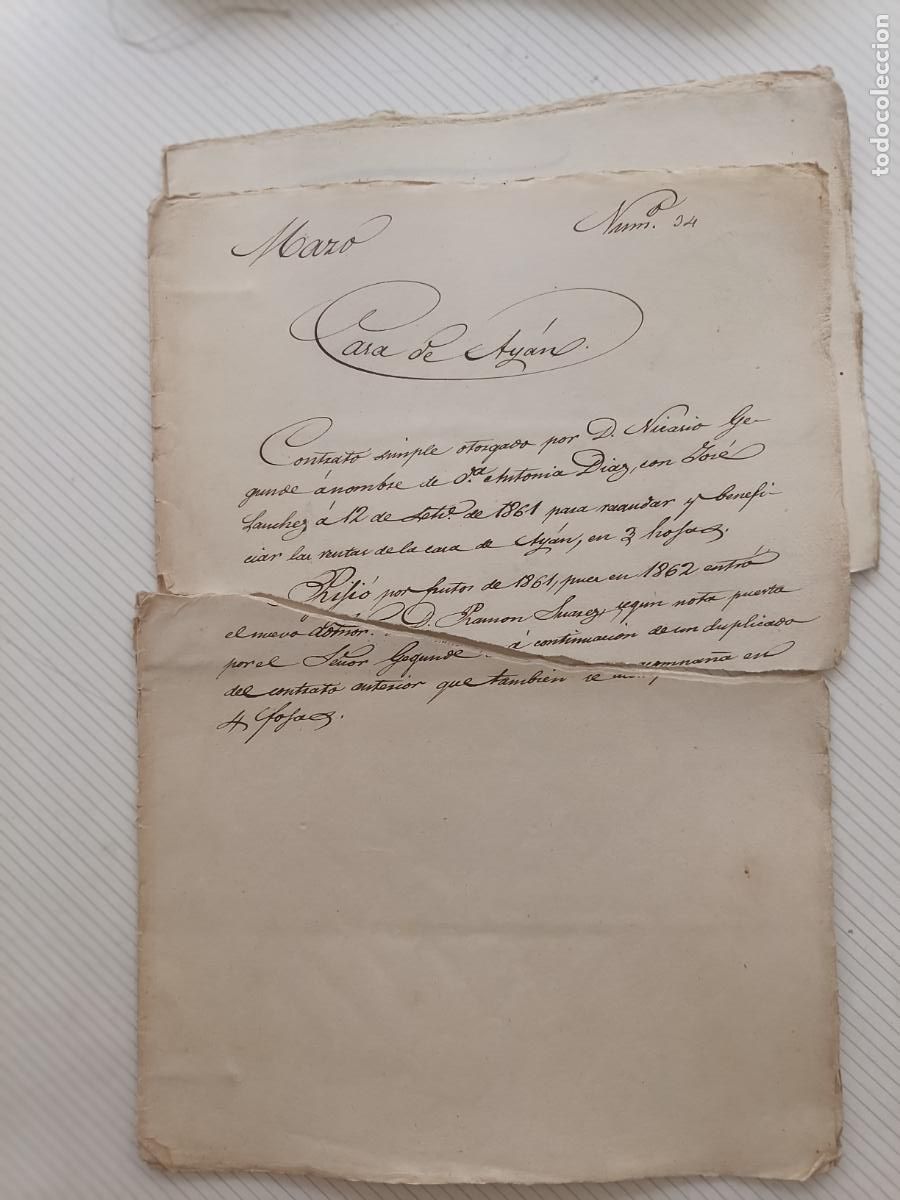 Mazo
Num.º 34
Casa de Ayán.
Contrato simple otorgado por D. Nicasio Ge-
gunde á nombre de D.ª Antonia Diaz, con José
Sanchez á 12 de Set.e de 1861 para recaudar y benefi-
ciar las rentas de la casa de Ayán, en 3 hojas.
Rijió por frutos de 1861, pues en 1862 entró
el nuevo D. Ramon Suarez, segun nota puesta
por el Señor Gegunde á continuacion de un duplicado
del contrato anterior que tambien se en
4 fojas.
todocoleccion